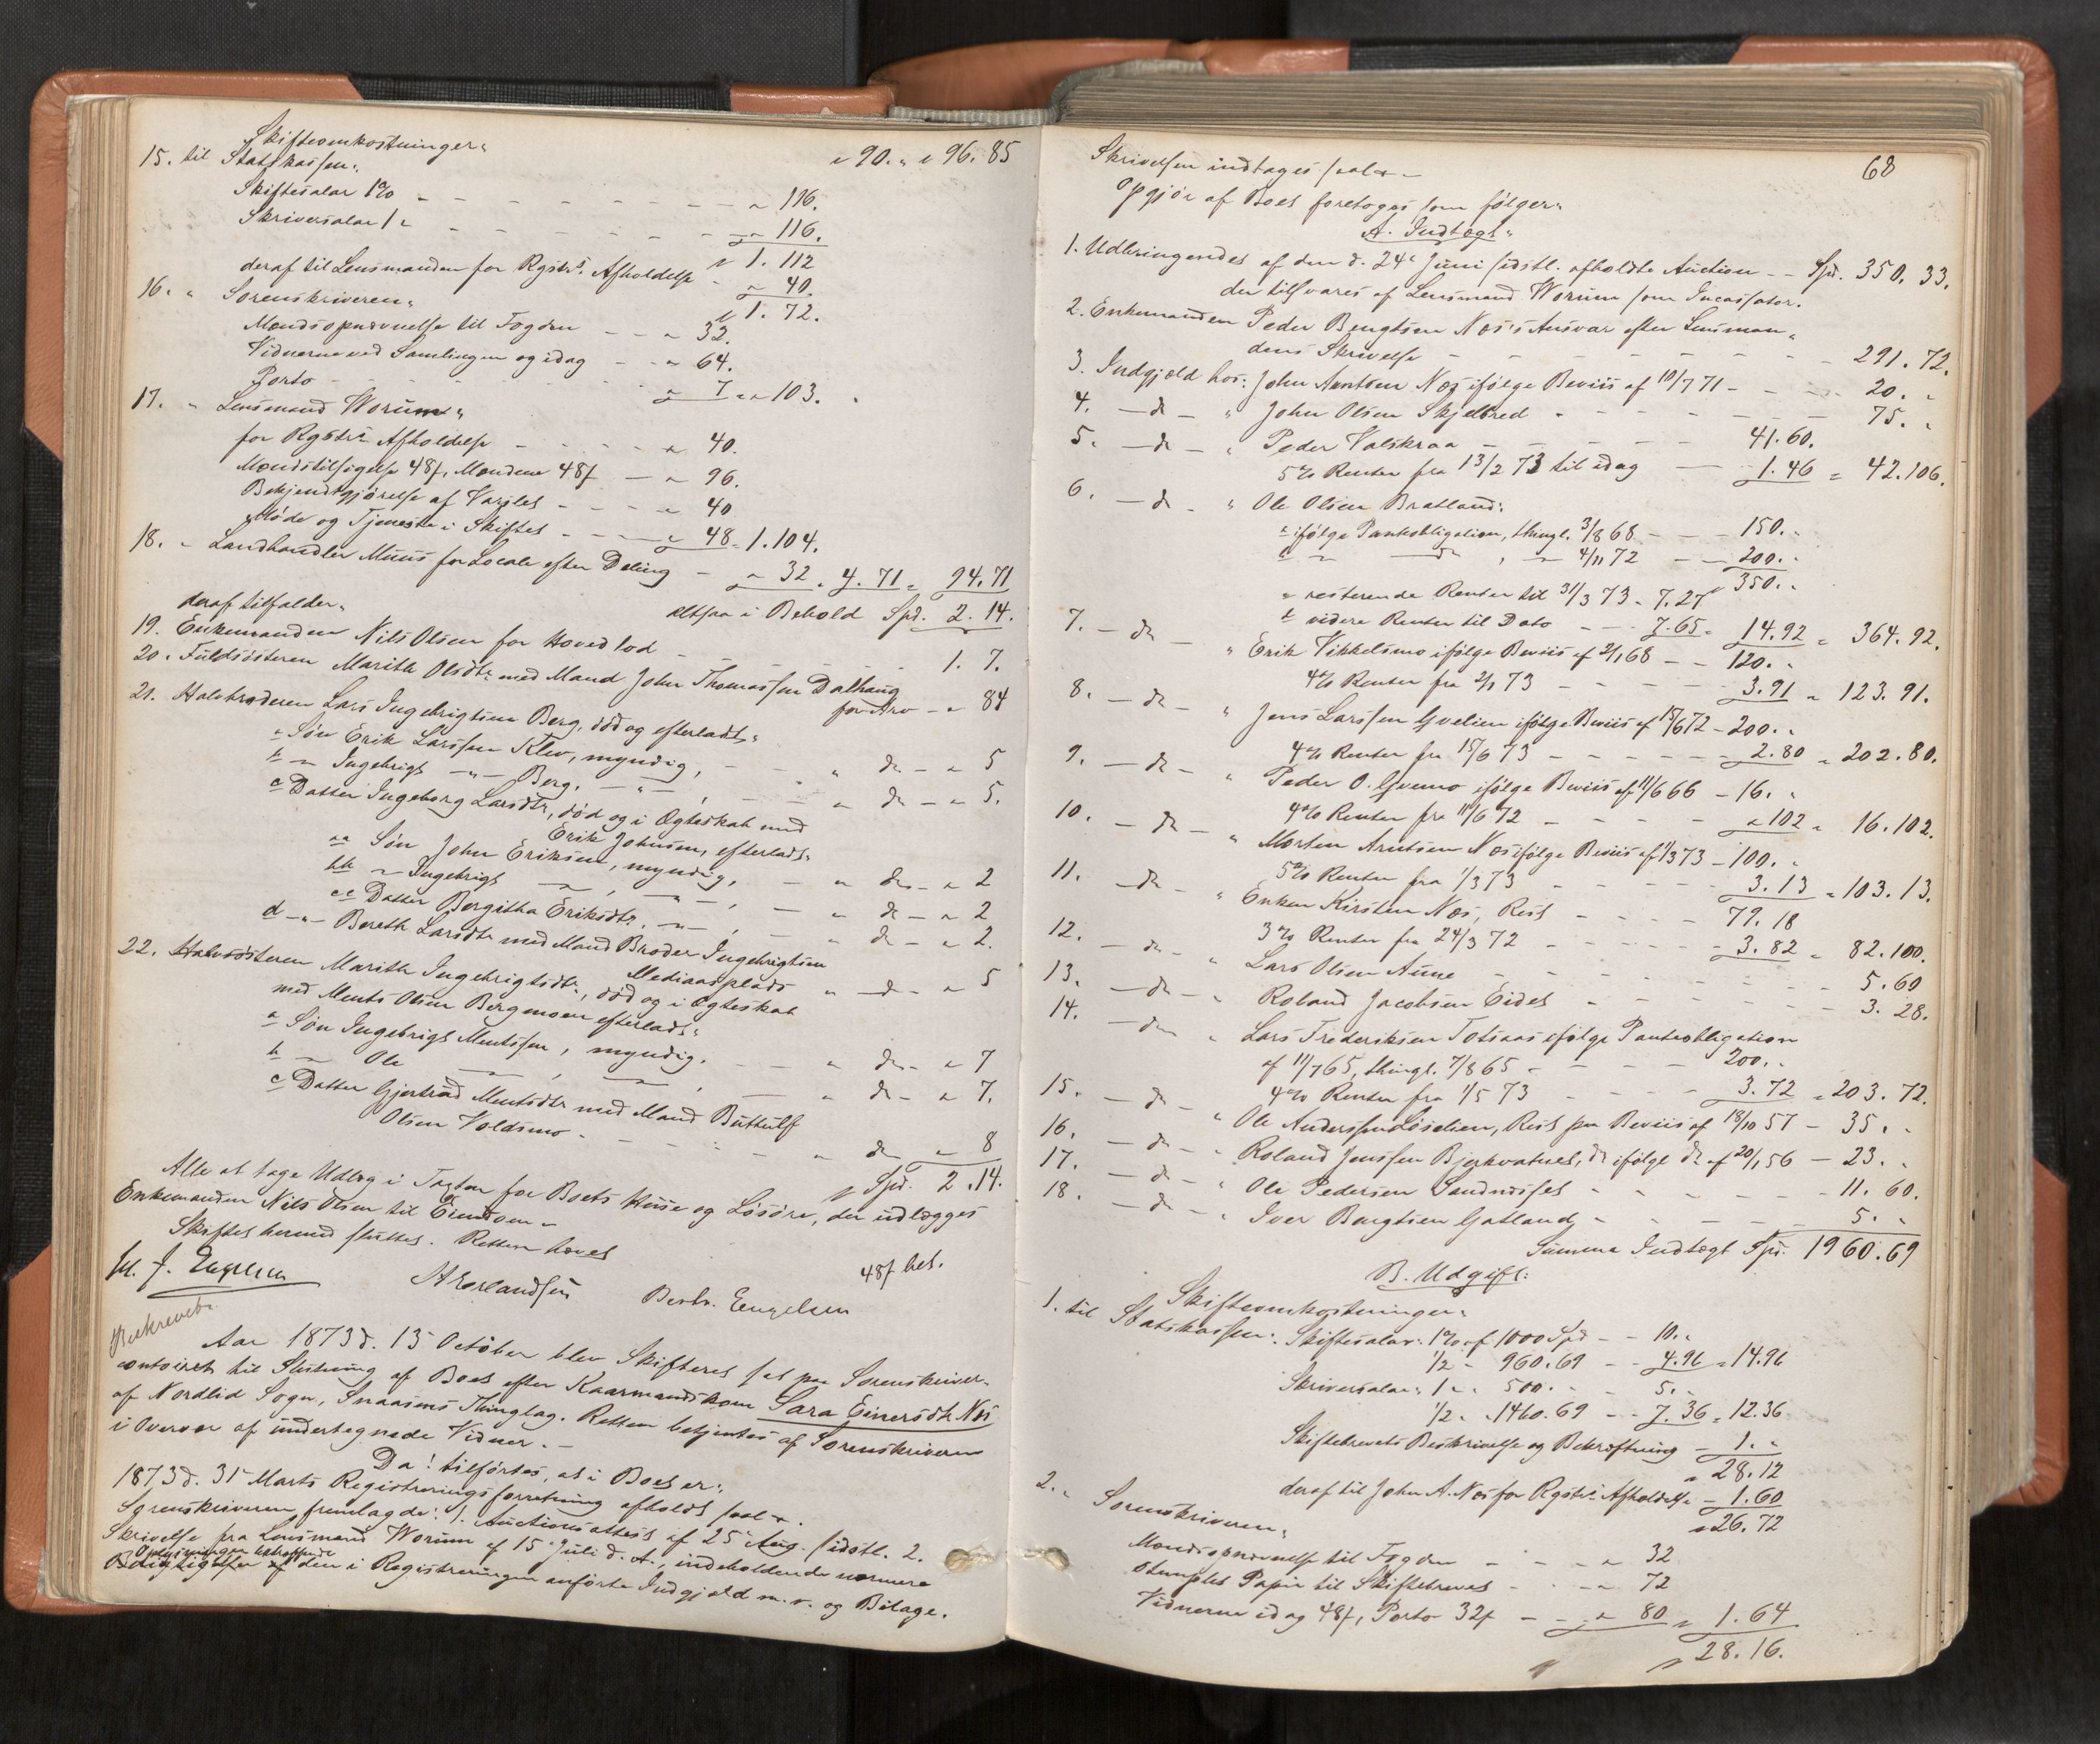 Skifteomkostninger:
15. til Statskassen:  " 90. " " 96. 85
Skiftesalar 1% - - - " 116.
Skriversalar 1 " - - - " 116.
" 1. 112
deraf til Lensmanden for Rgstrs. Afholdelse - " 40.
" 1. 72.
16. " Sorenskriveren:
Mandsopnævnelse til Fogden - - " 32.
Vidnerne ved Samlingen og idag - - " 64.
Porto - - - " 7 " " 103.
17. " Lensmand Worum:
for Rgstrs Afholdelse - - - " 40.
Mændstilsigelse 48 f, Mændene 48 f - " 96.
Bekjendtgjørelse af Varslet - - - " 40
Møde og Tjeneste i Skiftet - - - " 48 = 1. 104.
18. " Landhandler Muus for Locale efter Deling - " 32 = 4. 71 = 94. 71
altsaa i Behold Spd. 2. 14.
deraf tilfalder:
19. Enkemanden Nils Olsen for Hovedlod - - - 1. 7.
20. Fuldsøsteren Marith Olsdtr med Mand John Thomassen Dalhaug
for Arv - " 84
21. Halvbroderen Lars Ingebrigtsen Berg, død og efterladt:
a Søn Erik Larssen Klev, myndig, - - " do - " 5
b " Ingebrigt -"- Berg, -"- , - - " do - " 5.
c Datter Ingeborg Larsdtr, død og i Ægteskab med
Erik Johnsen, efterladt:
aa Søn John Eriksen, myndig, - " do - " 2
bb " Ingebrigt -"- , -"- , - " do - " 2
cc Datter Bergitha Eriksdtr, -"- , - " do - " 2.
d -"- Bereth Larsdtr med Mand Broder Ingebrigtsen
Mediaasplads " do - " 5
22. Halvsøsteren Marith Ingebrigtsdtr, død og i Ægteskab
med Ments Olsen Bergmoen efterladt:
a Søn Ingebrigt Mentssen, myndig. - " do - " 7
b " Ole -"- , -"- , - " do - " 7.
c Datter Gjertrud Mentsdtr med Mand Buttulf
Olsen Voldsmo - - - " do " 8
" Spd. 2. 14.
Alle at tage Udlæg i Taxten for Boets Huse og Løsøre, der udlægges
Enkemanden Nils Olsen til Eiendom.
Skiftet hermed sluttet. Retten hævet
J. Engelsen  A Erlandsen  Berbr. Engelsen  48 f bet.
Beskrevet.
Aar 1873 d. 15 October blev Skifteret sat paa Sorenskriver-
contoiret til Slutning af Boet efter Kaarmandskone Sara Einersdtr Næs
af Nordlid Sogn, Snaasens Thinglag. Retten betjentes af Sorenskriveren
i Overvær af undertegnede Vidner. -
Da! tilførtes, at i Boet er:
1873 d. 31 Marts Registreringsforretning afholdt saal.
Sorenskriveren fremlagde: 1. Auctionsattest af 25 Aug. sidstl. 2.
Skrivelse fra Lensmand Worum af 15 Juli d. A., indeholdende nærmere
Oplysninger betræffende den i Registreringen anførte Indgjæld m. v. og Bilage.
68
Skrivelsen indtages saal. -
Opgjør af Boet foretoges som følger:
A. Indtægt:
1. Udbringendet af den d. 24 Juni sidstl. afholdte Auction - - Spd. 350. 33.
der tilsvares af Lensmand Worum som Incassator.
2. Enkemanden Peder Bengtsen Næs's Ansvar efter Lensman-
dens Skrivelse - - - 291. 72.
3. Indgjæld hos: John Arntsen Næs ifølge Beviis af 10/7 71 - - - 20. "
4. - do - " John Olsen Skjelbred - - - 75. "
5. - do - " Peder Valskraa - - - 41. 60.
5% Renter fra 13/2 73 til idag - 1. 46 = 42. 106.
6. - do - " Ole Olsen Bratland:
a ifølge Panteobligation, thingl. 3/8 68 - - 150. "
b " - do - , " 4/11 72 - - 200. "
350. "
a resterende Renter til 31/3 73 - 7. 27
b videre Renter til Dato - - - 7. 65 = 14. 92 = 364. 92.
7. - do - " Erik Vikkelsmo ifølge Beviis af 2/1 68 - - 120. "
4% Renter fra 2/1 73 - - - 3. 91 = 123. 91.
8. - do - " Jens Larssen Gvelien ifølge Beviis af 15/6 72 - 200. "
4% Renter fra 15/6 73 - - - 2. 80 = 202. 80.
9. - do - " Peder O. Grumo ifølge Beviis af 11/6 66 - 16. "
4% Renter fra 11/6 72 - - - " 102 = 16. 102.
10. - do - " Morten Arntsen Næs ifølge Beviis af 1/3 73 - 100. "
5% Renter fra 1/3 73 - - - 3. 13 = 103. 13.
11. - do - " Enken Kirsten Næs, Rest - - - 79. 18
3% Renter fra 24/3 72 - - - 3. 82 = 82. 100.
12. - do - " Lars Olsen Aune - - - 5. 60
13. - do - " Roland Jacobsen Eidet - - - 3. 28.
14. - do - " Lars Frederiksen Totsaas ifølge Panteobligation
af 11/7 65, thingl. 7/8 65 - - 200. "
4% Renter fra 1/5 73 - - - 3. 72 = 203. 72.
15. - do - " Ole Anderssen Løselien, Rest paa Beviis af 18/10 57 - 35. "
16. - do - " Roland Jenssen Bjørkvatnet, do ifølge do af 20/1 56 - 23. "
17. - do - " Ole Pedersen Sandnæset - - - 11. 60.
18. - do - " Iver Bengtsen Gatland - - - 5. "
Summa Indtægt Spd. 1960. 69
B. Udgift:
Skifteomkostninger:
1. til Statskassen: Skiftesalar: 1% af 1000 Spd - - 10. "
1/2 - 960. 69 - - 4. 96 = 14. 96
Skriversalar: 1 " " 500. " - 5. "
1/2 " " 1460. 69 - - 7. 36 = 12. 36
Skiftebrevets Beskrivelse og Bekræftning - 1. "
" 28. 12
deraf til John A. Næs for Rgstrs Afholdelse - 1. 60
" 26. 72
2. " Sorenskriveren:
Mandsopnævnelse til Fogden - - - " 32
Stemplet Papir til Skiftebrevet - - - " 72
Vidnerne idag 48 f, Porto 32 f - - " 80 " 1. 64
" 28. 16.